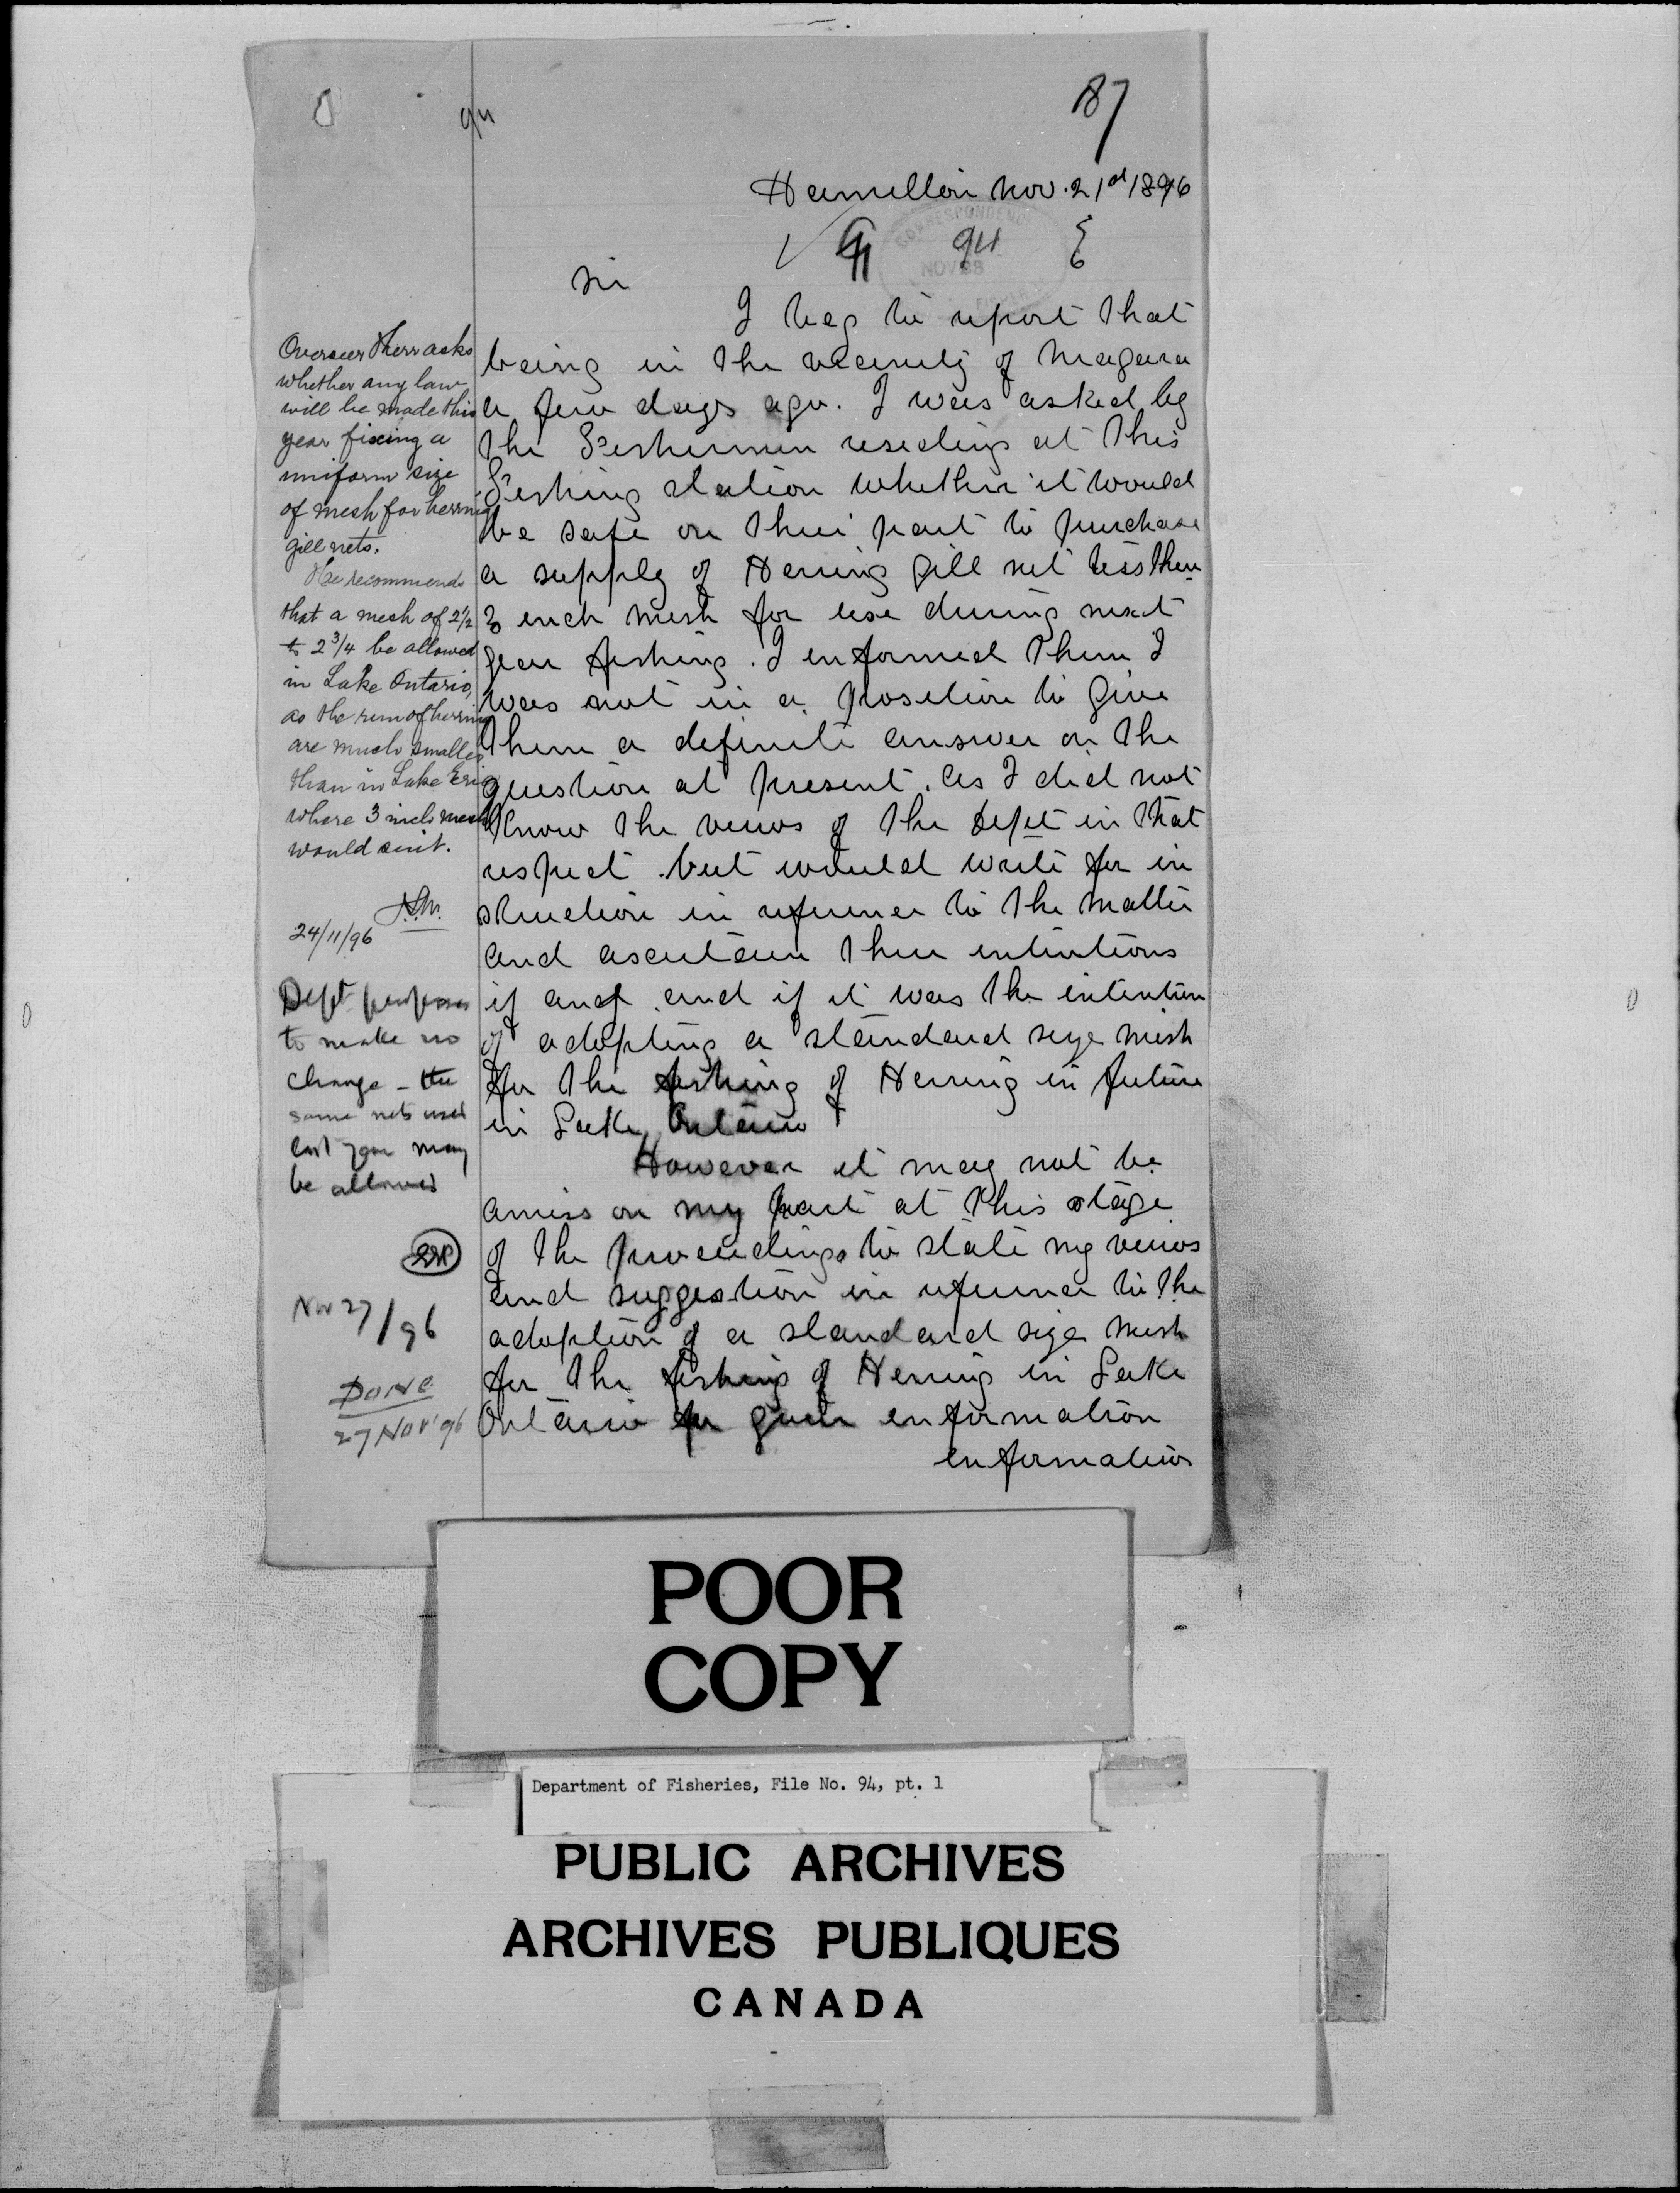 87
94
Hamilton Nov. 21st 1896
94
CORRESPONDENCE
NOV 23
Sir
I beg to report that
being in the vecinity of Niagara
a few days ago. I was asked by
the Fishermen residing at this
Fishing station whether it would
be safe on their part to purchase
a supply of Herring gill net less then
3 inch mesh for use during next
year fishing. I informed them I
was not in a position to give
them a definite answer on the
question at present. as I did not
know the views of the Dept in that
respect. but would write for in
struction in reference to the matter
and ascertain their intentions
if any. and if it was the intention
of adopting a standard size mesh
for the fishing of Herring in future
in Lake Ontario
However it may not be
amiss on my part at this stage
of the proceedings to state my views
and suggestion in reference to the
adoption of a standard size mesh
for the fishing of Herring in Lake
Ontario for your information
information
Overseer Kerr asks
whether any law
will be made this
year fixing a
uniform size
of mesh for herring
gill nets.
He recommends
that a mesh of 2 1/2
to 2 3/4 be allowed
in Lake Ontario,
as the run of herring
are much smaller
than in Lake Erie
where 3 inch mesh
would suit.
24/11/96
Dept proposes
to make no
change - the
same nets used
last year may
be allowed
Nov 27/96
Done
27 Nov '96
POOR
COPY
Department of Fisheries, File No. 94, pt. 1
PUBLIC ARCHIVES
ARCHIVES PUBLIQUES
CANADA